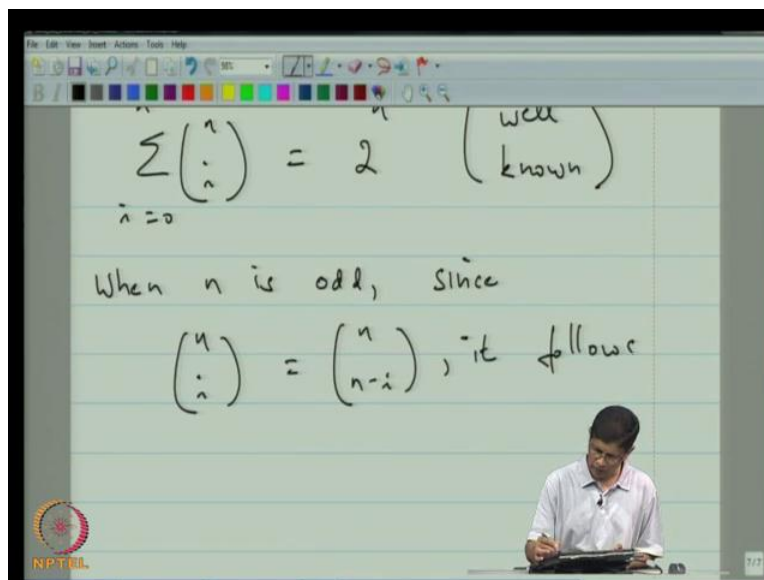 File Edit View Insert Actions Tools Help
n n
∑ (n i) = 2 (well known)
i = 0
When n is odd, since
(n i) = (n n-i), it follows
NPTEL
7/7